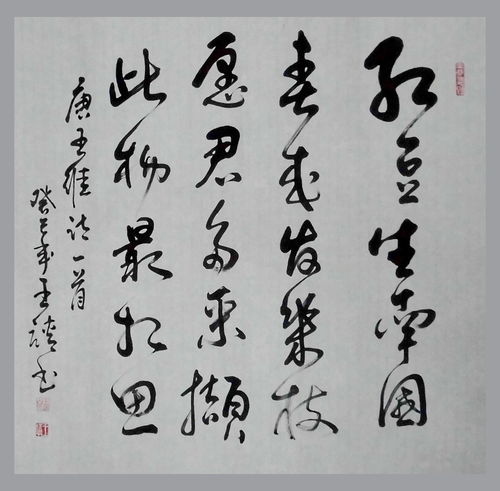 红豆生南國
春来发幾枝
愿君多采擷
此物最相思
唐王维诗一首
癸巳年王书